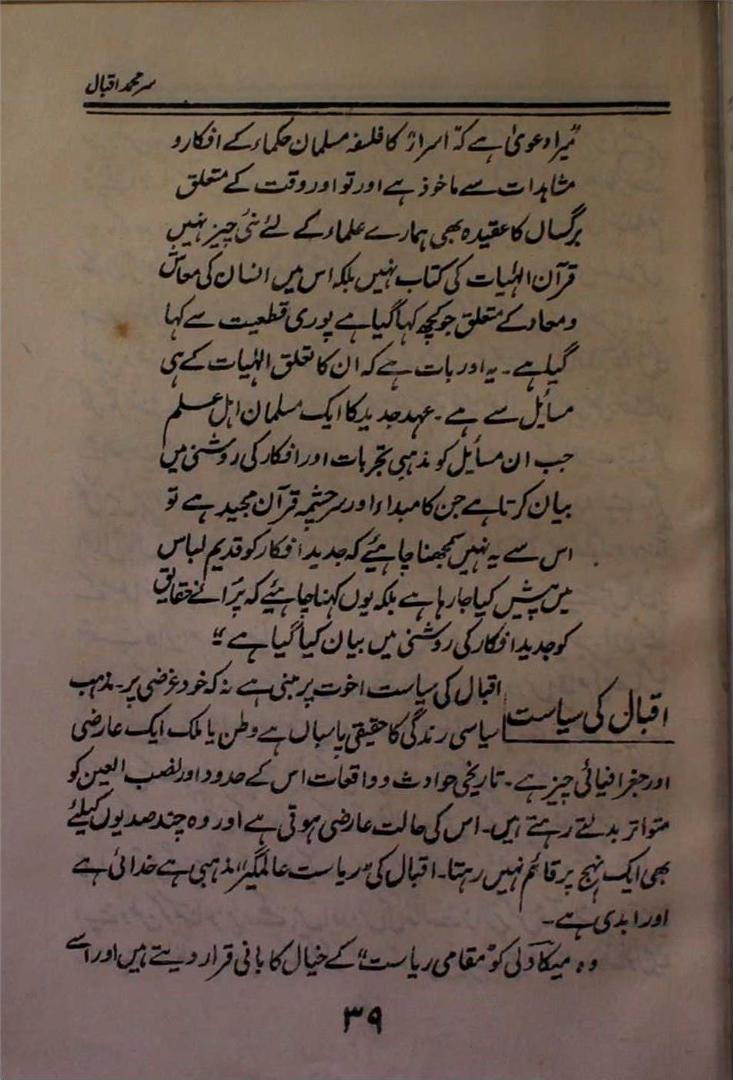 سر محمد اقبال
"میرا دعویٰ ہے کہ اسرار کا فلسفہ مسلمان حکماء کے افکار و
مشاہدات سے ماخوذ ہے اور تو اور وقت کے متعلق
برگساں کا عقیدہ بھی ہمارے علماء کے لئے نئی چیز نہیں
قرآن الہٰیات کی کتاب نہیں بلکہ اس میں انسان کی معاش
و معاد کے متعلق جو کچھ کہا گیا ہے پوری قطعیت سے کہا
گیا ہے۔ یہ اور بات ہے کہ ان کا تعلق الہٰیات کے ہی
مسائل سے ہے۔ عہد جدید کا ایک مسلمان اہل علم
جب ان مسائل کو مذہبی تجربات اور افکار کی روشنی میں
بیان کرتا ہے جن کا مبداء اور سرچشمہ قرآن مجید ہے تو
اس سے یہ نہیں سمجھنا چاہیئے کہ جدید افکار کو قدیم لباس
میں پیش کیا جا رہا ہے بلکہ یوں کہنا چاہیئے کہ پرانے حقایق
کو جدید افکار کی روشنی میں بیان کیا گیا ہے"
اقبال کی سیاست
اقبال کی سیاست اخوت پر مبنی ہے نہ کہ خود غرضی پر۔ مذہب
سیاسی زندگی کا حقیقی پاسباں ہے وطن یا ملک ایک عارضی
اور جغرافیائی چیز ہے۔ تاریخی حوادث و واقعات اس کے حدود اور نصب العین کو
متواتر بدلتے رہتے ہیں۔ اس کی حالت عارضی ہوتی ہے اور وہ چند صدیوں کیلئے
بھی ایک نہج پر قائم نہیں رہتا۔ اقبال کی "ریاست عالمگیر" مذہبی ہے خدائی ہے
اور ابدی ہے۔
وہ میکاولی کو "مقامی ریاست" کے خیال کا بانی قرار دیتے ہیں اور اسے
۳۹